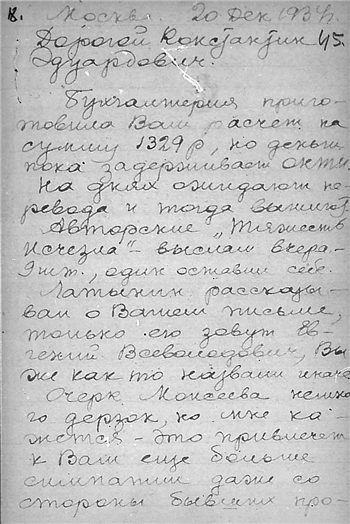 8. Москва. 20 Дек 1934 г.
Дорогой Константин 45.
Эдуардович.
Бухгалтерия приго-
товила Вам расчет на
сумму 1329 р, но деньги
пока задерживает ОНТИ.
На днях ожидают пе-
ревода и тогда вышлют.
Авторские „Тяжесть
исчезла" – выслали вчера –
9 шт., один оставил себе.
Латынин рассказы-
вал о Вашем письме,
только его зовут Ев-
гений Всеволодович, Вы
же как то назвали иначе
Очерк Моисеева немно
го дерзок, но мне ка-
жется – это привлечет
к Вам еще больше
симпатии даже со
стороны бывших про-